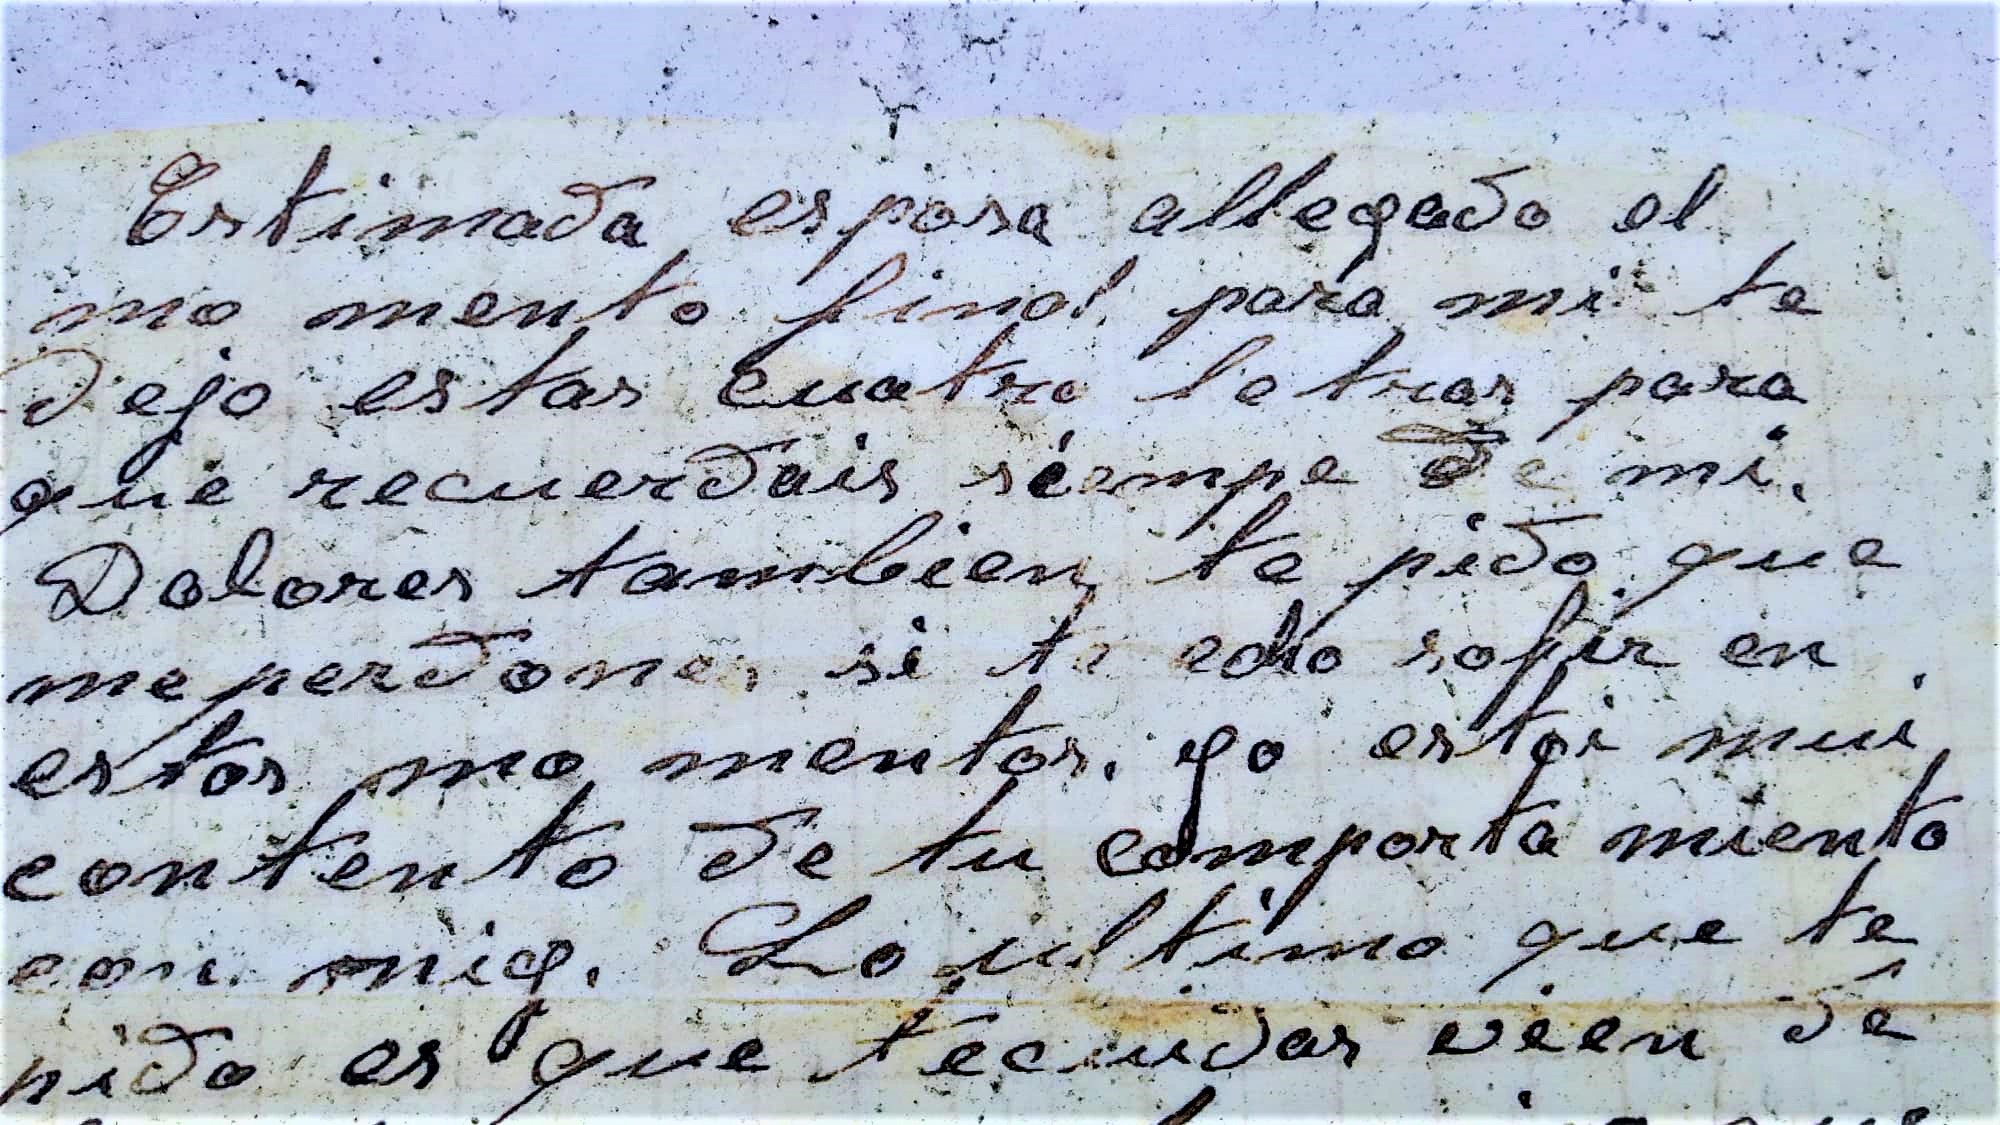 Estimada esposa allegado el
mo mento final para mi te
dejo estas cuatro letras para
que recuerdais siempe de mi.
Dolores tambien te pido que
me perdones si te edo sofir en
estos mo mentos. yo estoi mui
contento de tu comporta miento
con mig. Lo ultimo que te
pido es que tecuidas vien de